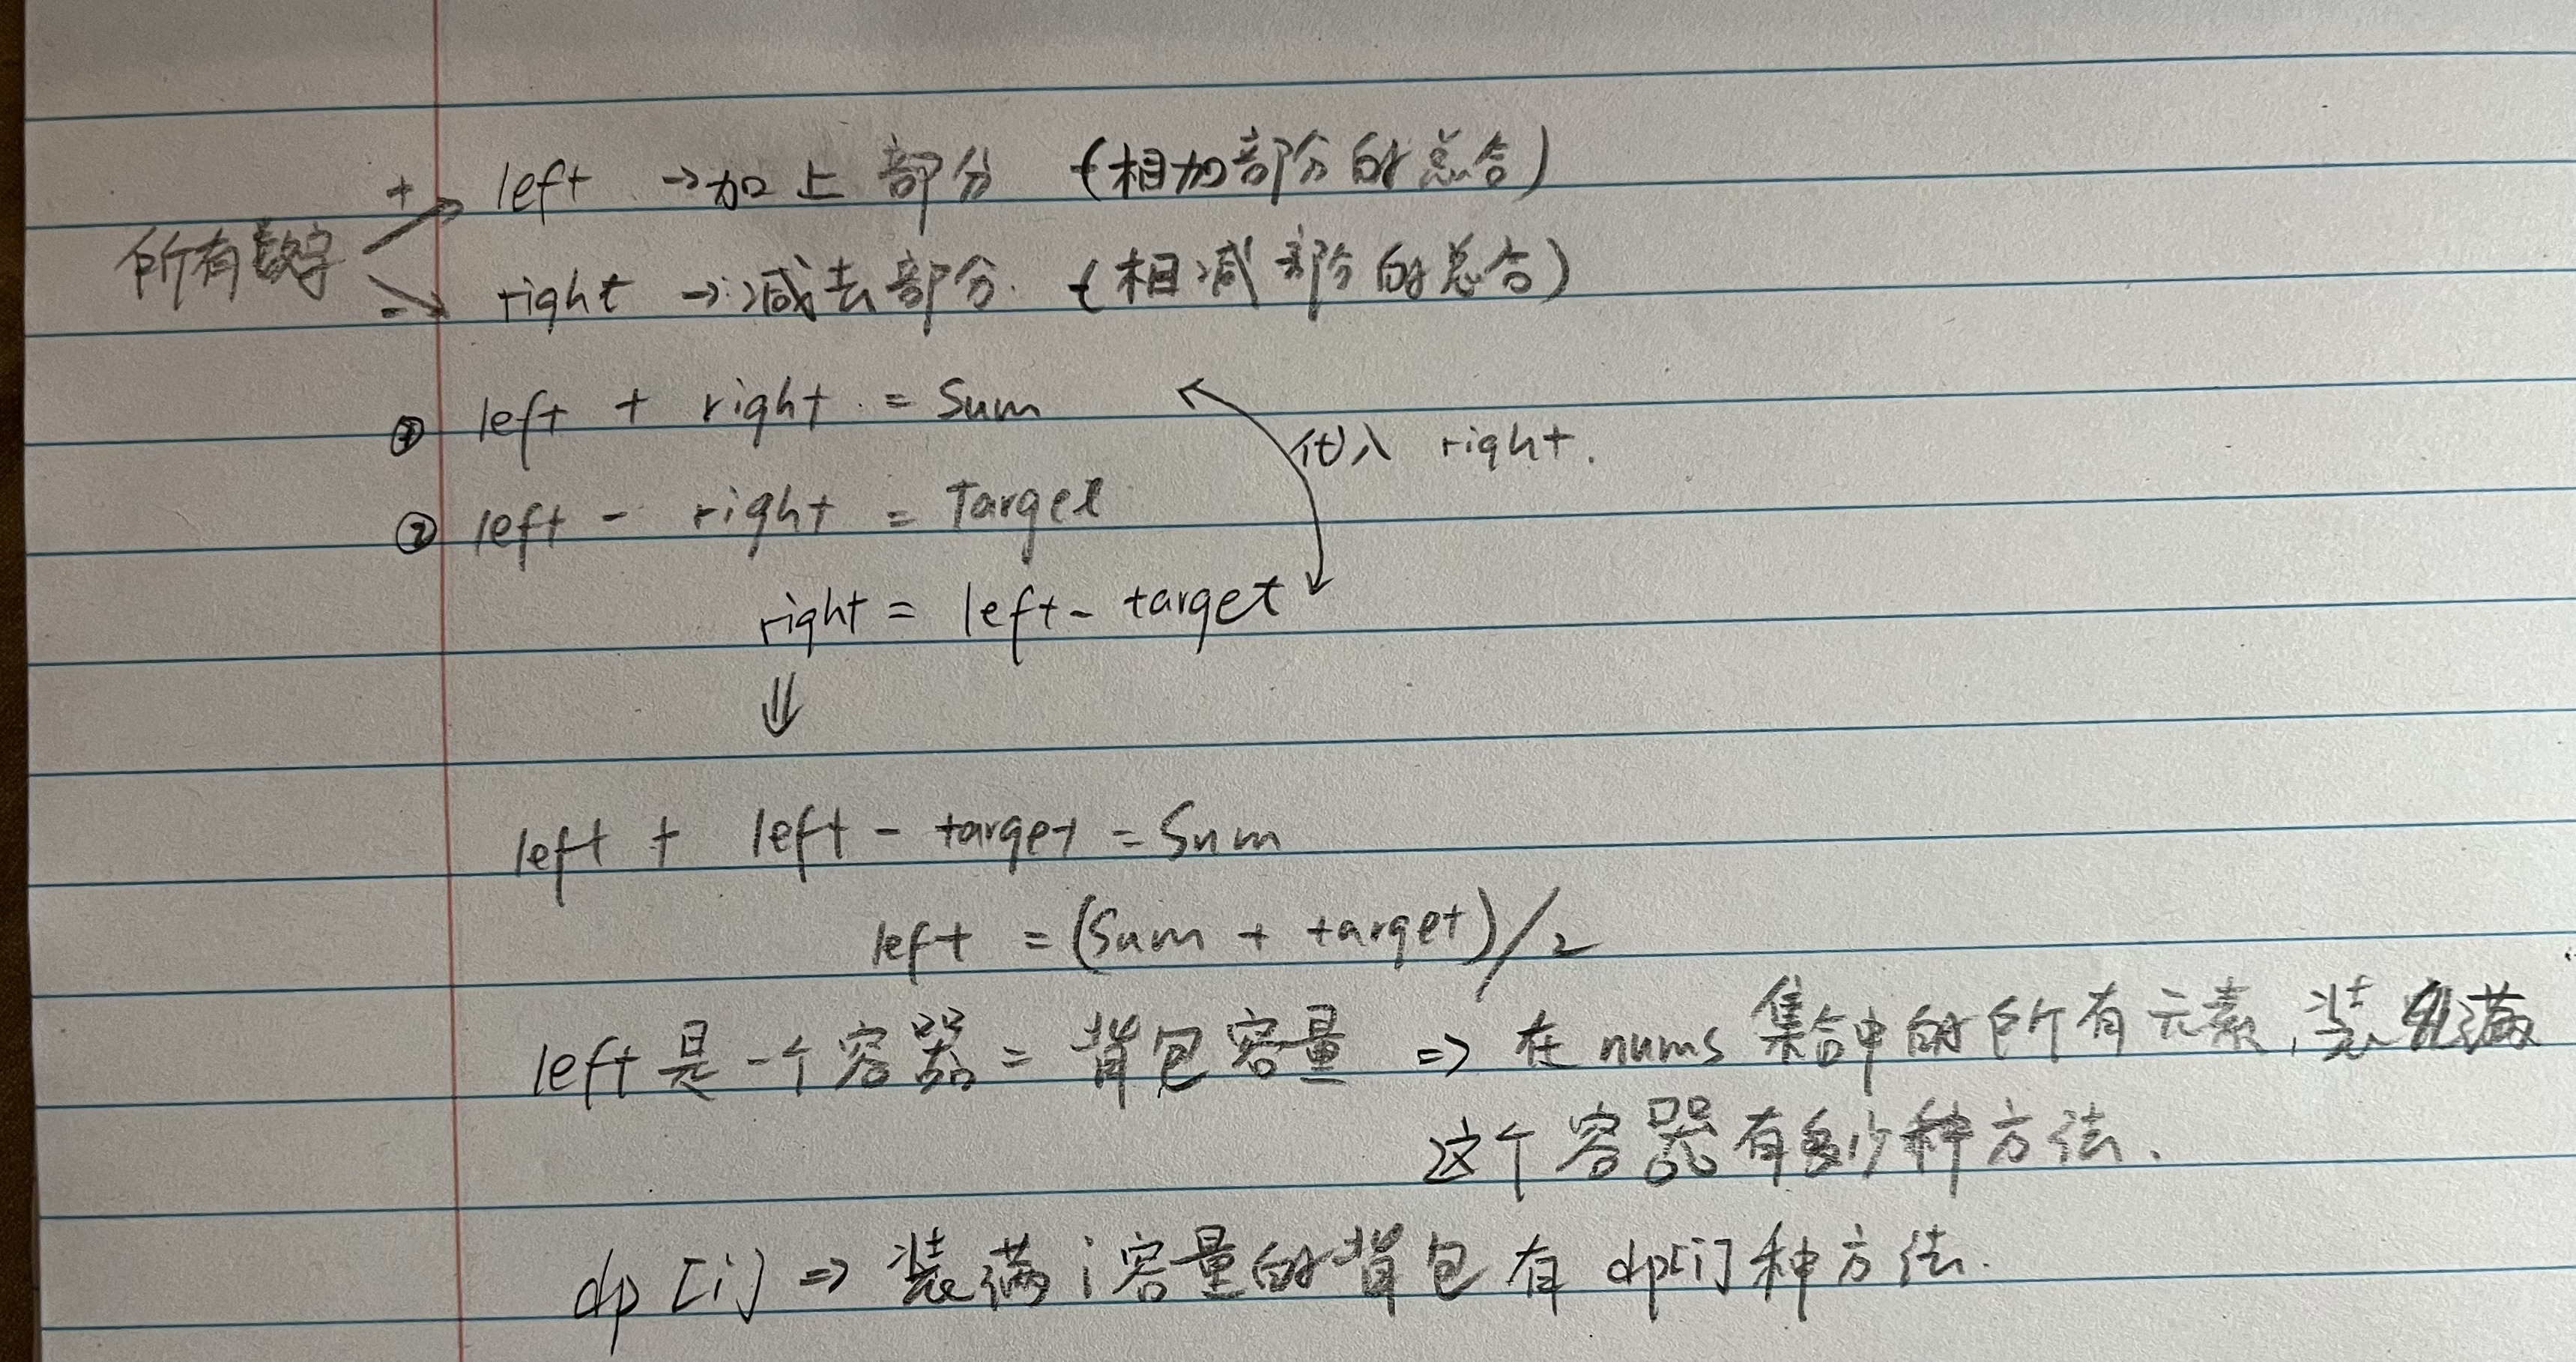 + left →加上部分 (相加部分的总合)
所有数字
- right →减去部分. (相减部分的总合)
① left + right = Sum
代入 right.
② left - right = Target
right = left - target
⇓
left + left - target = Sum
left = (Sum + target)/2
left是一个容器 = 背包容量 => 在nums集合中的所有元素,装满
这个容器有多少种方法.
dp[i] => 装满i容量的背包有dp[i]种方法.